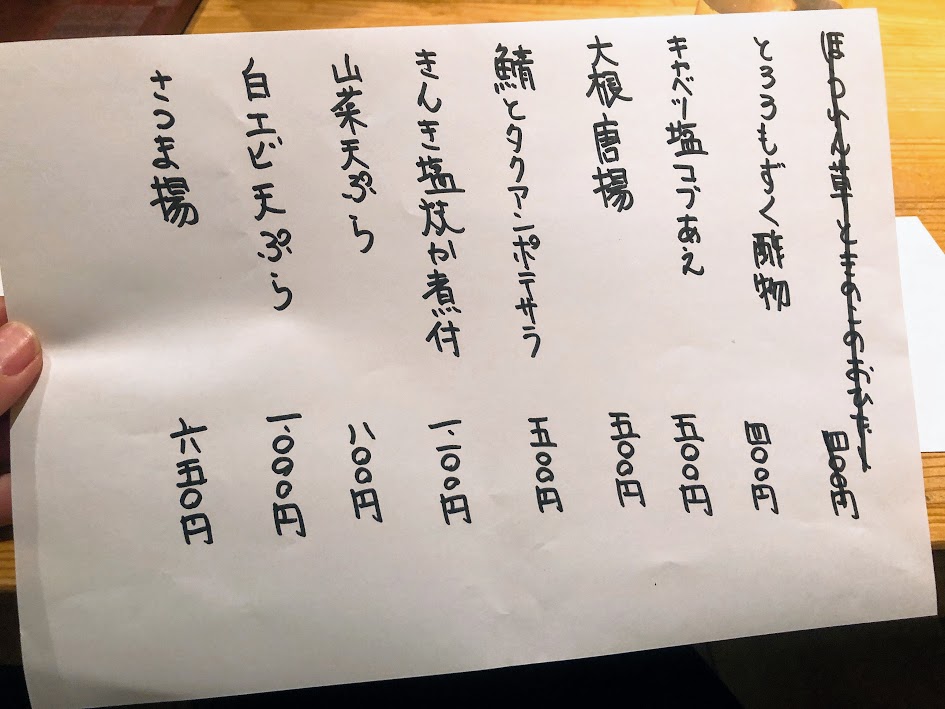 ほうれん草ときのこのおひたし 四〇〇円
とろろもずく酢物 四〇〇円
キャベツ塩コブあえ 五〇〇円
大根唐揚 五〇〇円
鯖とタクアンポテサラ 五〇〇円
きんき塩炊か煮付 一、二〇〇円
山菜天ぷら 八〇〇円
白エビ天ぷら 一、〇〇〇円
さつま揚 六五〇円